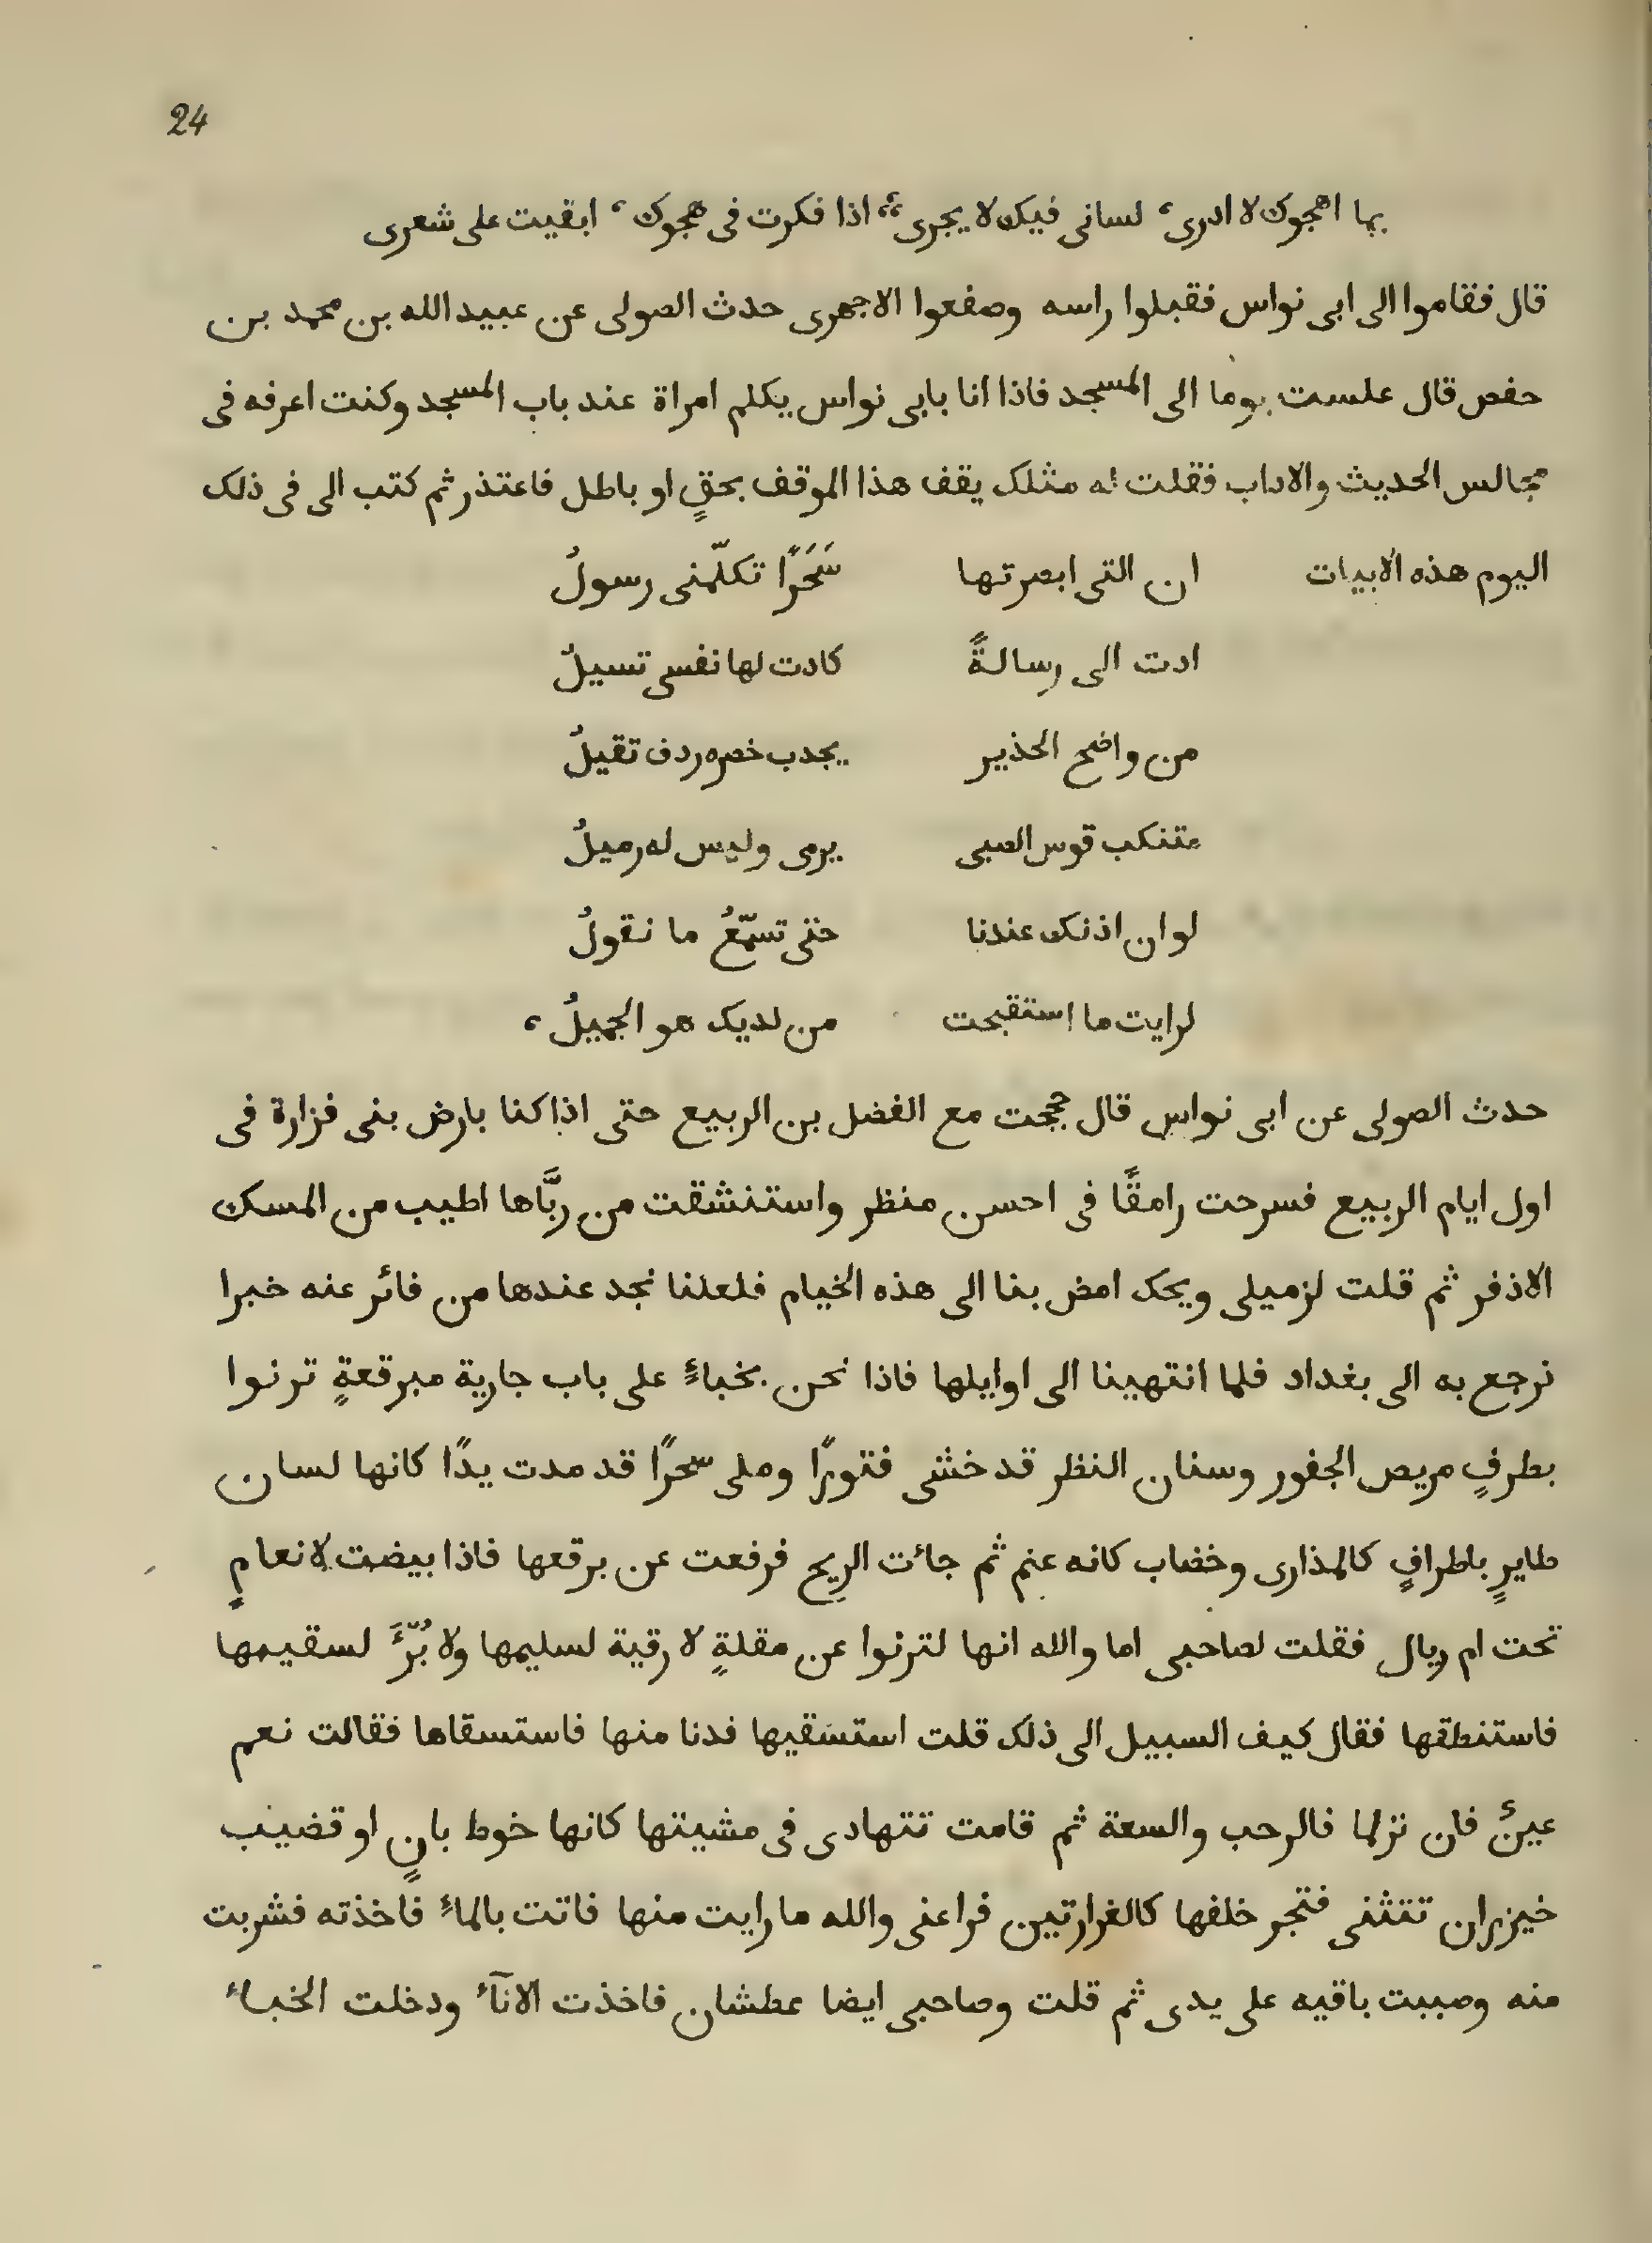 24
بما اهجوك لا ادرى، لسانى فيك لا يجرى، اذا فكرت فى هجوك، ابقيت على شعرى
قال فقاموا الى ابى نواس فقبلوا راسه وصفعوا الاجهرى حدث الصولى عن عبيد الله بن محمد بن
حفص قال علست يوما الى المسجد فاذا انا بابى نواس يكلم امراة عند باب المسجد وكنت اعرفه فى
مجالس الحديث والاداب فقلت له مثلك يقف هذا الموقف بحقٍ او باطل فاعتذر ثم كتب الى فى ذلك
اليوم هذه الابيات ان التى ابصرتها سَحَرًا تكلّمنى رسولُ
ادت الى رسالةً كادت لها نفسى تسيلُ
من واضح الحذير يجدب خصره ردف تقيلُ
متنكب قوس الصبى يرمى وليس له رميلُ
لو ان اذنك عندنا حتى تسمّعُ ما نقولُ
لرايت ما استقبحت من لديك هو الجميلُ،
حدث الصولى عن ابى نواس قال حججت مع الفضل بن الربيع حتى اذا كنا بارض بنى فزارة فى
اول ايام الربيع فسرحت رامقًا فى احسن منظر واستنشقت من ربَّاها اطيب من المسك
الاذفر ثم قلت لزميلى ويحك امض بنا الى هذه الخيام فلعلنا نجد عندها من فائر عنه خبرا
نرجع به الى بغداد فلما انتهينا الى اوايلها فاذا نحن بخباءٍ على باب جارية مبرقعةٍ ترنوا
بطرفٍ مريص الجفور وسنان النظر قد خشى فتورًا وملى سحرًا قد مدت يدًا كانها لسان
طايرٍ باطرافٍ كالمذارى وخضاب كانه عنم ثم جائت الريح فرفعت عن برقعها فاذا بيضت لانعامٍ
تحت ام ريال فقلت لصاحبى اما والله انها لترنوا عن مقلةٍ لا رقية لسليمها ولا بُرّءَ لسقيمها
فاستنطقها فقال كيف السبيل الى ذلك قلت استسَقيها فدنا منها فاستسقاها فقالت نعم
عينٌ فان نزلما فالرحب والسعة ثم قامت تتهادى فى مشيتها كانها خوط بانٍ او قضيب
خيزران تتثنى فتجر خلفها كالغرارتين فراعنى والله ما رايت منها فاتت بالماءِ فاخذته فشربت
منه وصببت باقيه على يدى ثم قلت وصاحبى ايضا عطشان فاخذت الانآء ودخلت الخباء